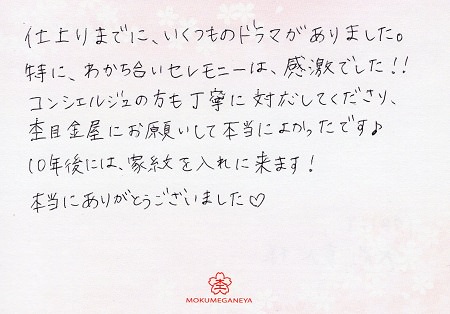 仕上りまでに、いくつものドラマがありました。
特に、わかち合いセレモニーは、感激でした!!
コンシェルジュの方も丁寧に対応してくださり、
杢目金屋にお願いして本当によかったです♪
10年後には、家紋を入れに来ます!
本当にありがとうございました♡
MOKUMEGANEYA